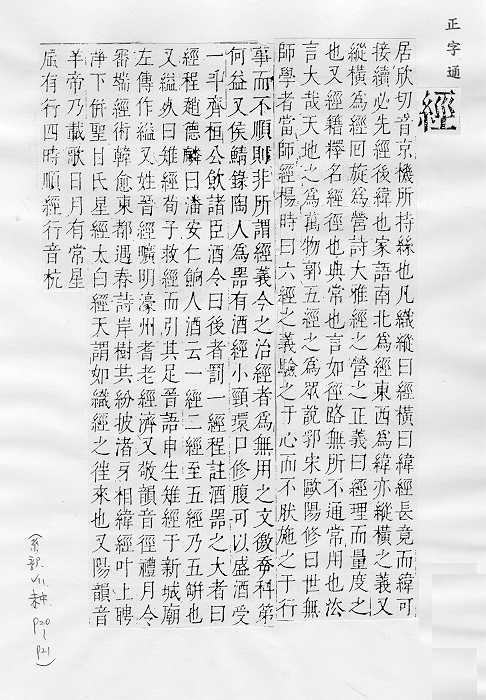 正字通
經
居欣切音京機所持絲也凡織縱曰經橫曰緯經長竟而緯可
接續必先經後緯也家語南北爲經東西爲緯亦縱橫之義又
縱橫爲經回旋爲營詩大雅經之營之正義曰經理而量度之
也又經籍釋名經徑也典常也言如徑路無所不通常用也法
言大哉天地之爲萬物郭五經之爲眾說郛宋歐陽修曰世無
師學者當師經楊時曰六經之義驗之于心而不肰施之于行
事而不順則非所謂經義今之治經者爲無用之文徼科第
何益又侯鯖錄陶人爲器有酒經小頸環口修腹可以盛酒受
一斗齊桓公飲諸臣酒令曰後者罰一經程註酒器之大者曰
經程趙德麟曰潘安仁餉人酒云一經二經至五經乃五缾也
又縊死曰雉經荀子救經而引其足晉語申生雉經于新城廟
左傳作縊又姓晉經曠明濠州耆老經濟又敬韻音徑禮月令
審端經術韓愈東都遇春詩岸樹共紛披渚牙相緯經叶上聘
淨下併聖甘氏星經太白經天謂如織經之徃來也又陽韻音
羊帝乃載歌日月有常星
辰有行四時順經行音杭
(糸部. VII. P20 | P21)